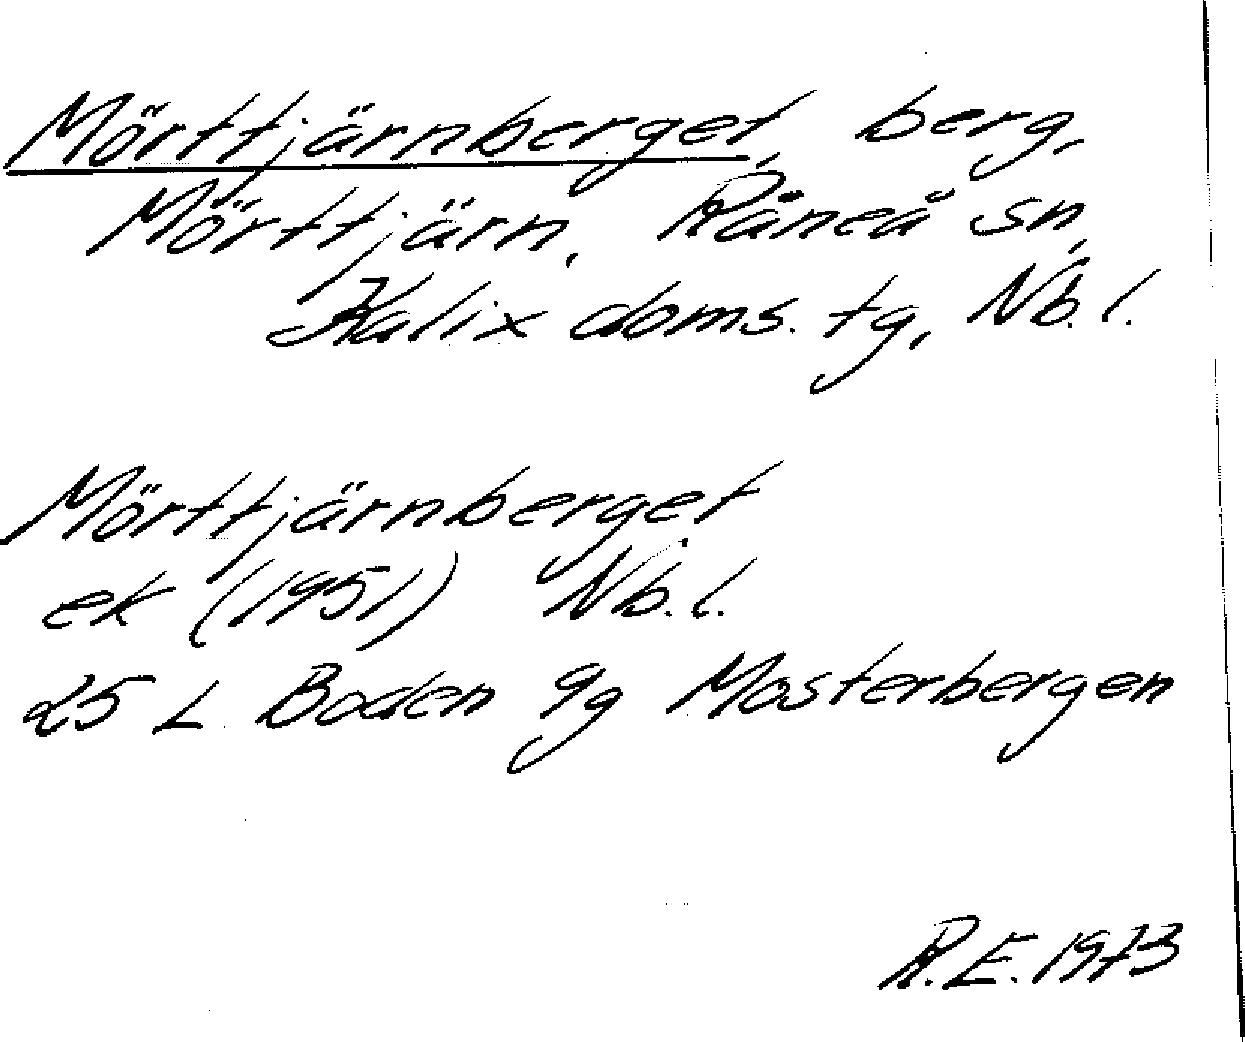 Mörttjärnberget, berg,
Mörttjärn, Råneå sn,
Kalix doms. tg, Nb. l.
Mörttjärnberget
ek (1951) Nb. l.
25 L Boden 9g Mosterbergen
R.E. 1973